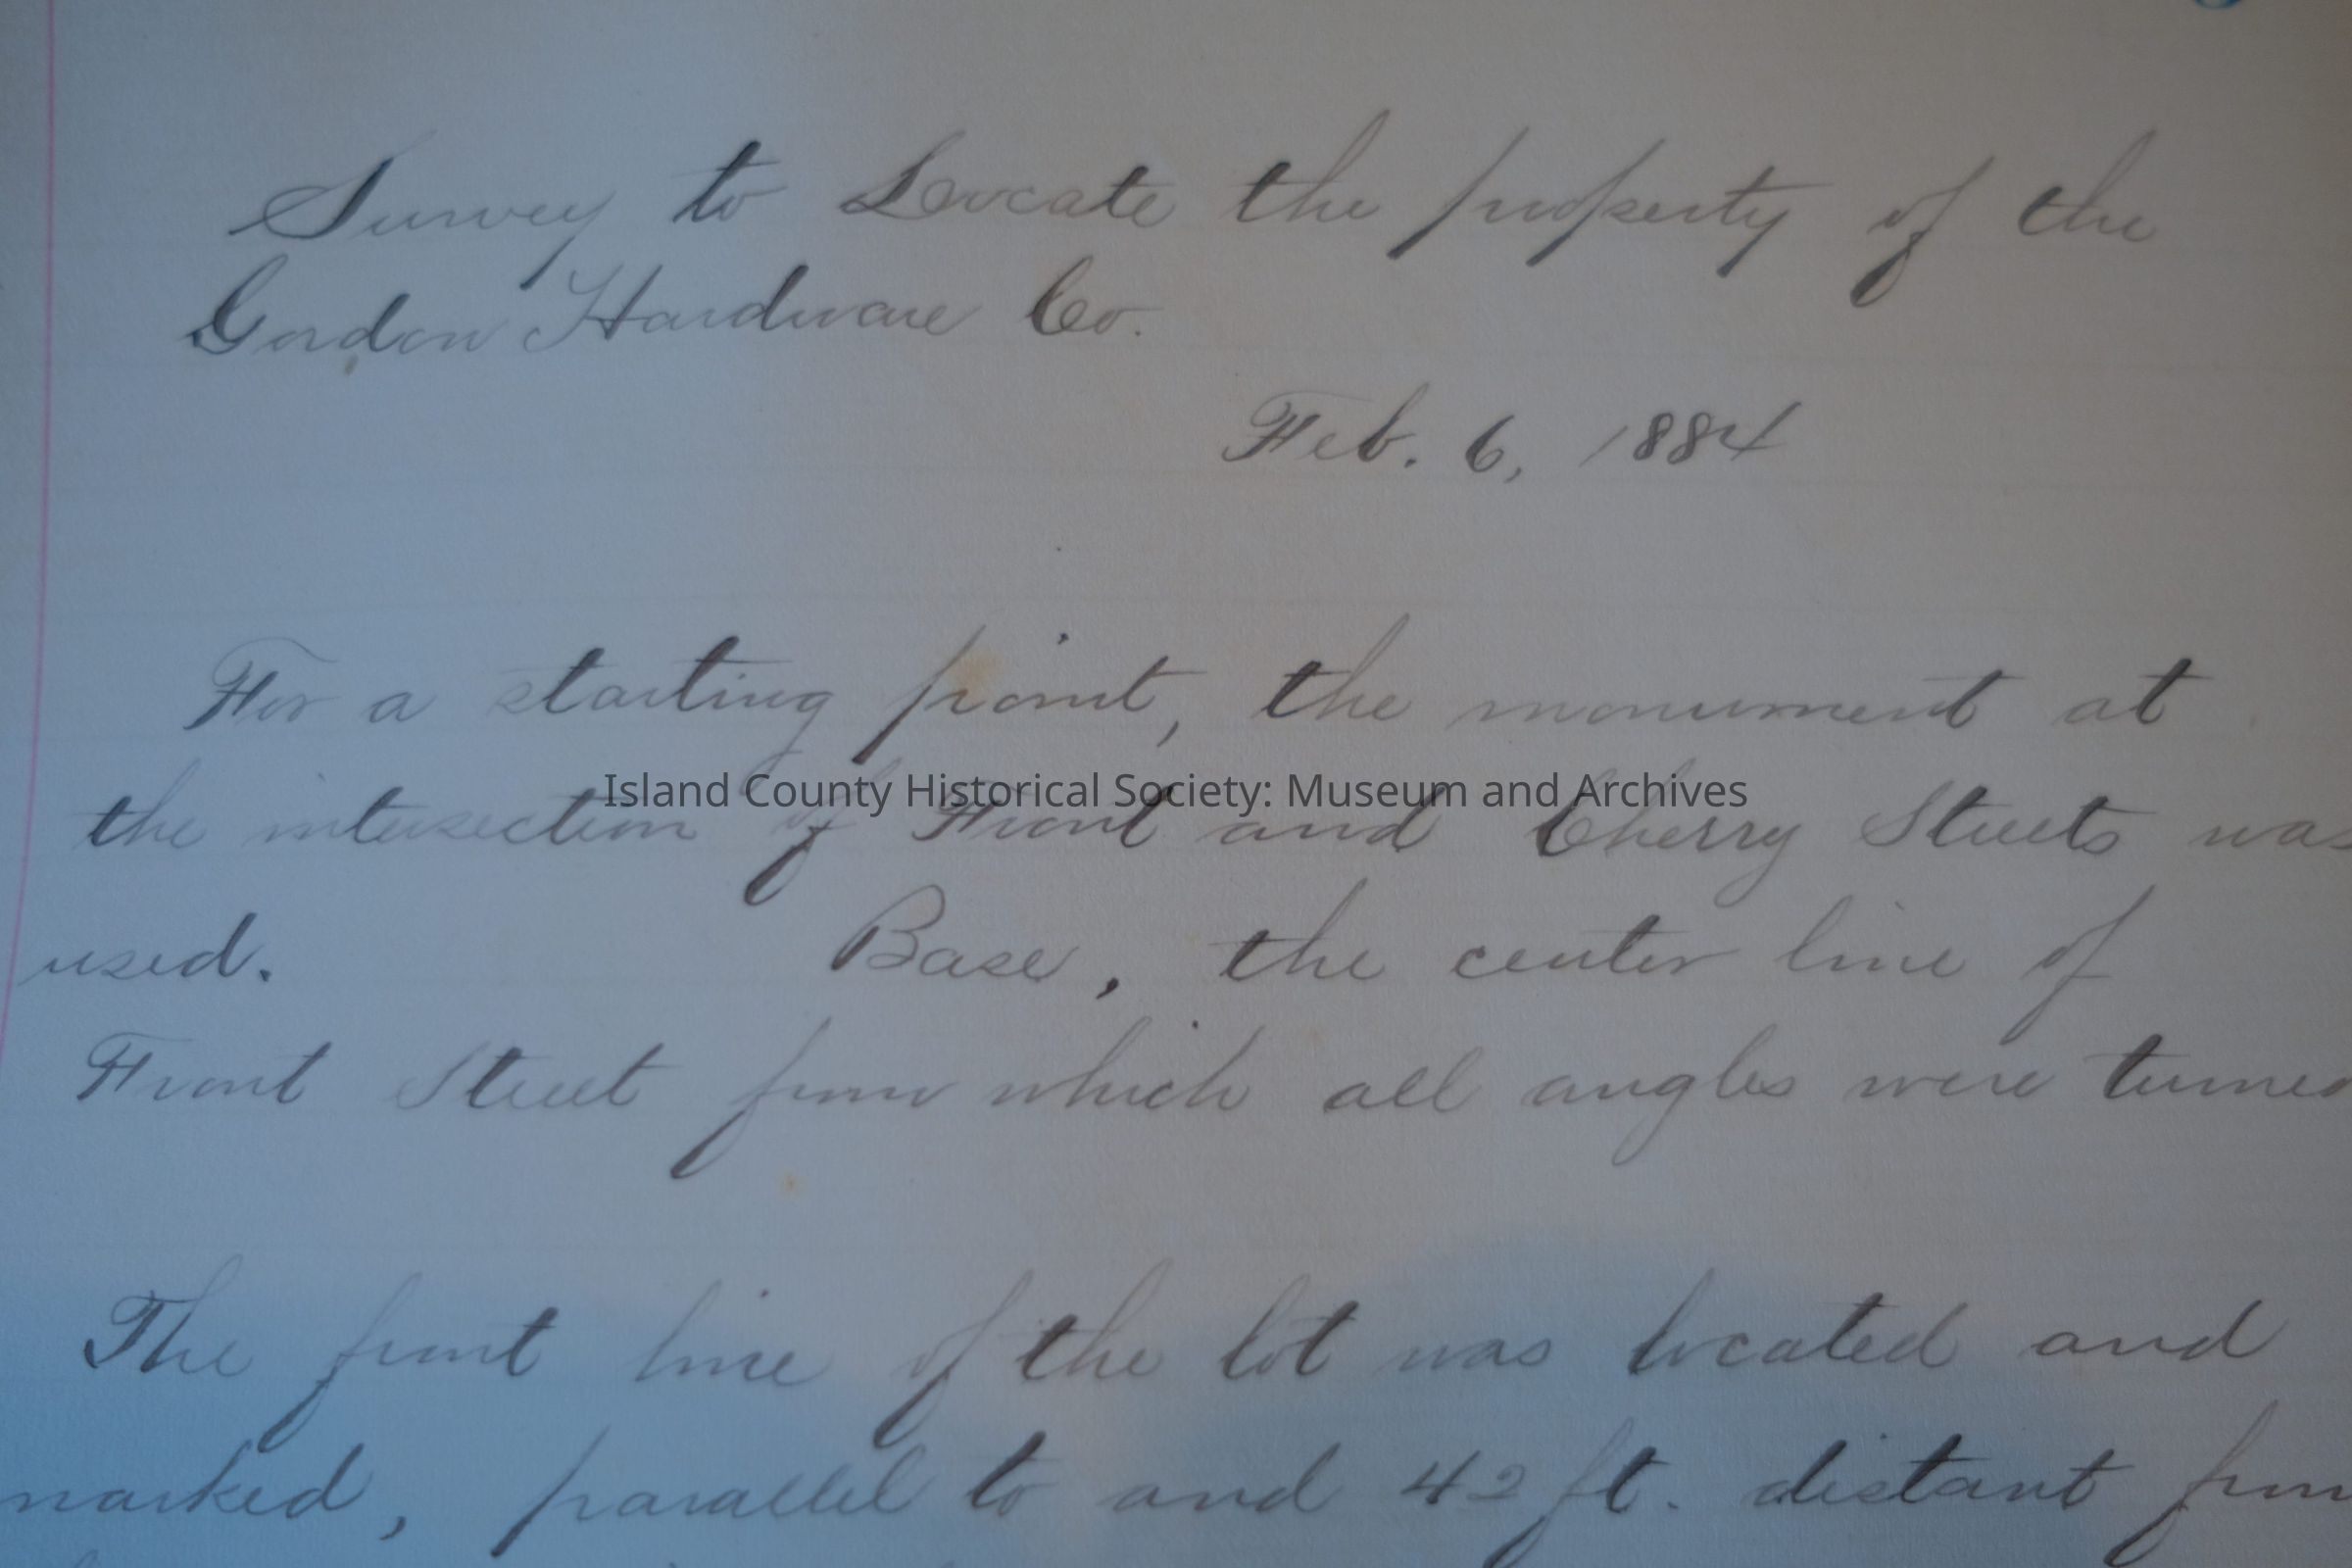 Survey to Locate the property of the
Gordon Hardware Co.
Feb. 6, 1884
For a starting point, the monument at
Island County Historical Society: Museum and Archives
the intersection of Front and Cherry Streets was
used. Base, the center line of
Front Street from which all angles were turned
The front line of the lot was located and
marked, parallel to and 42 ft. distant from